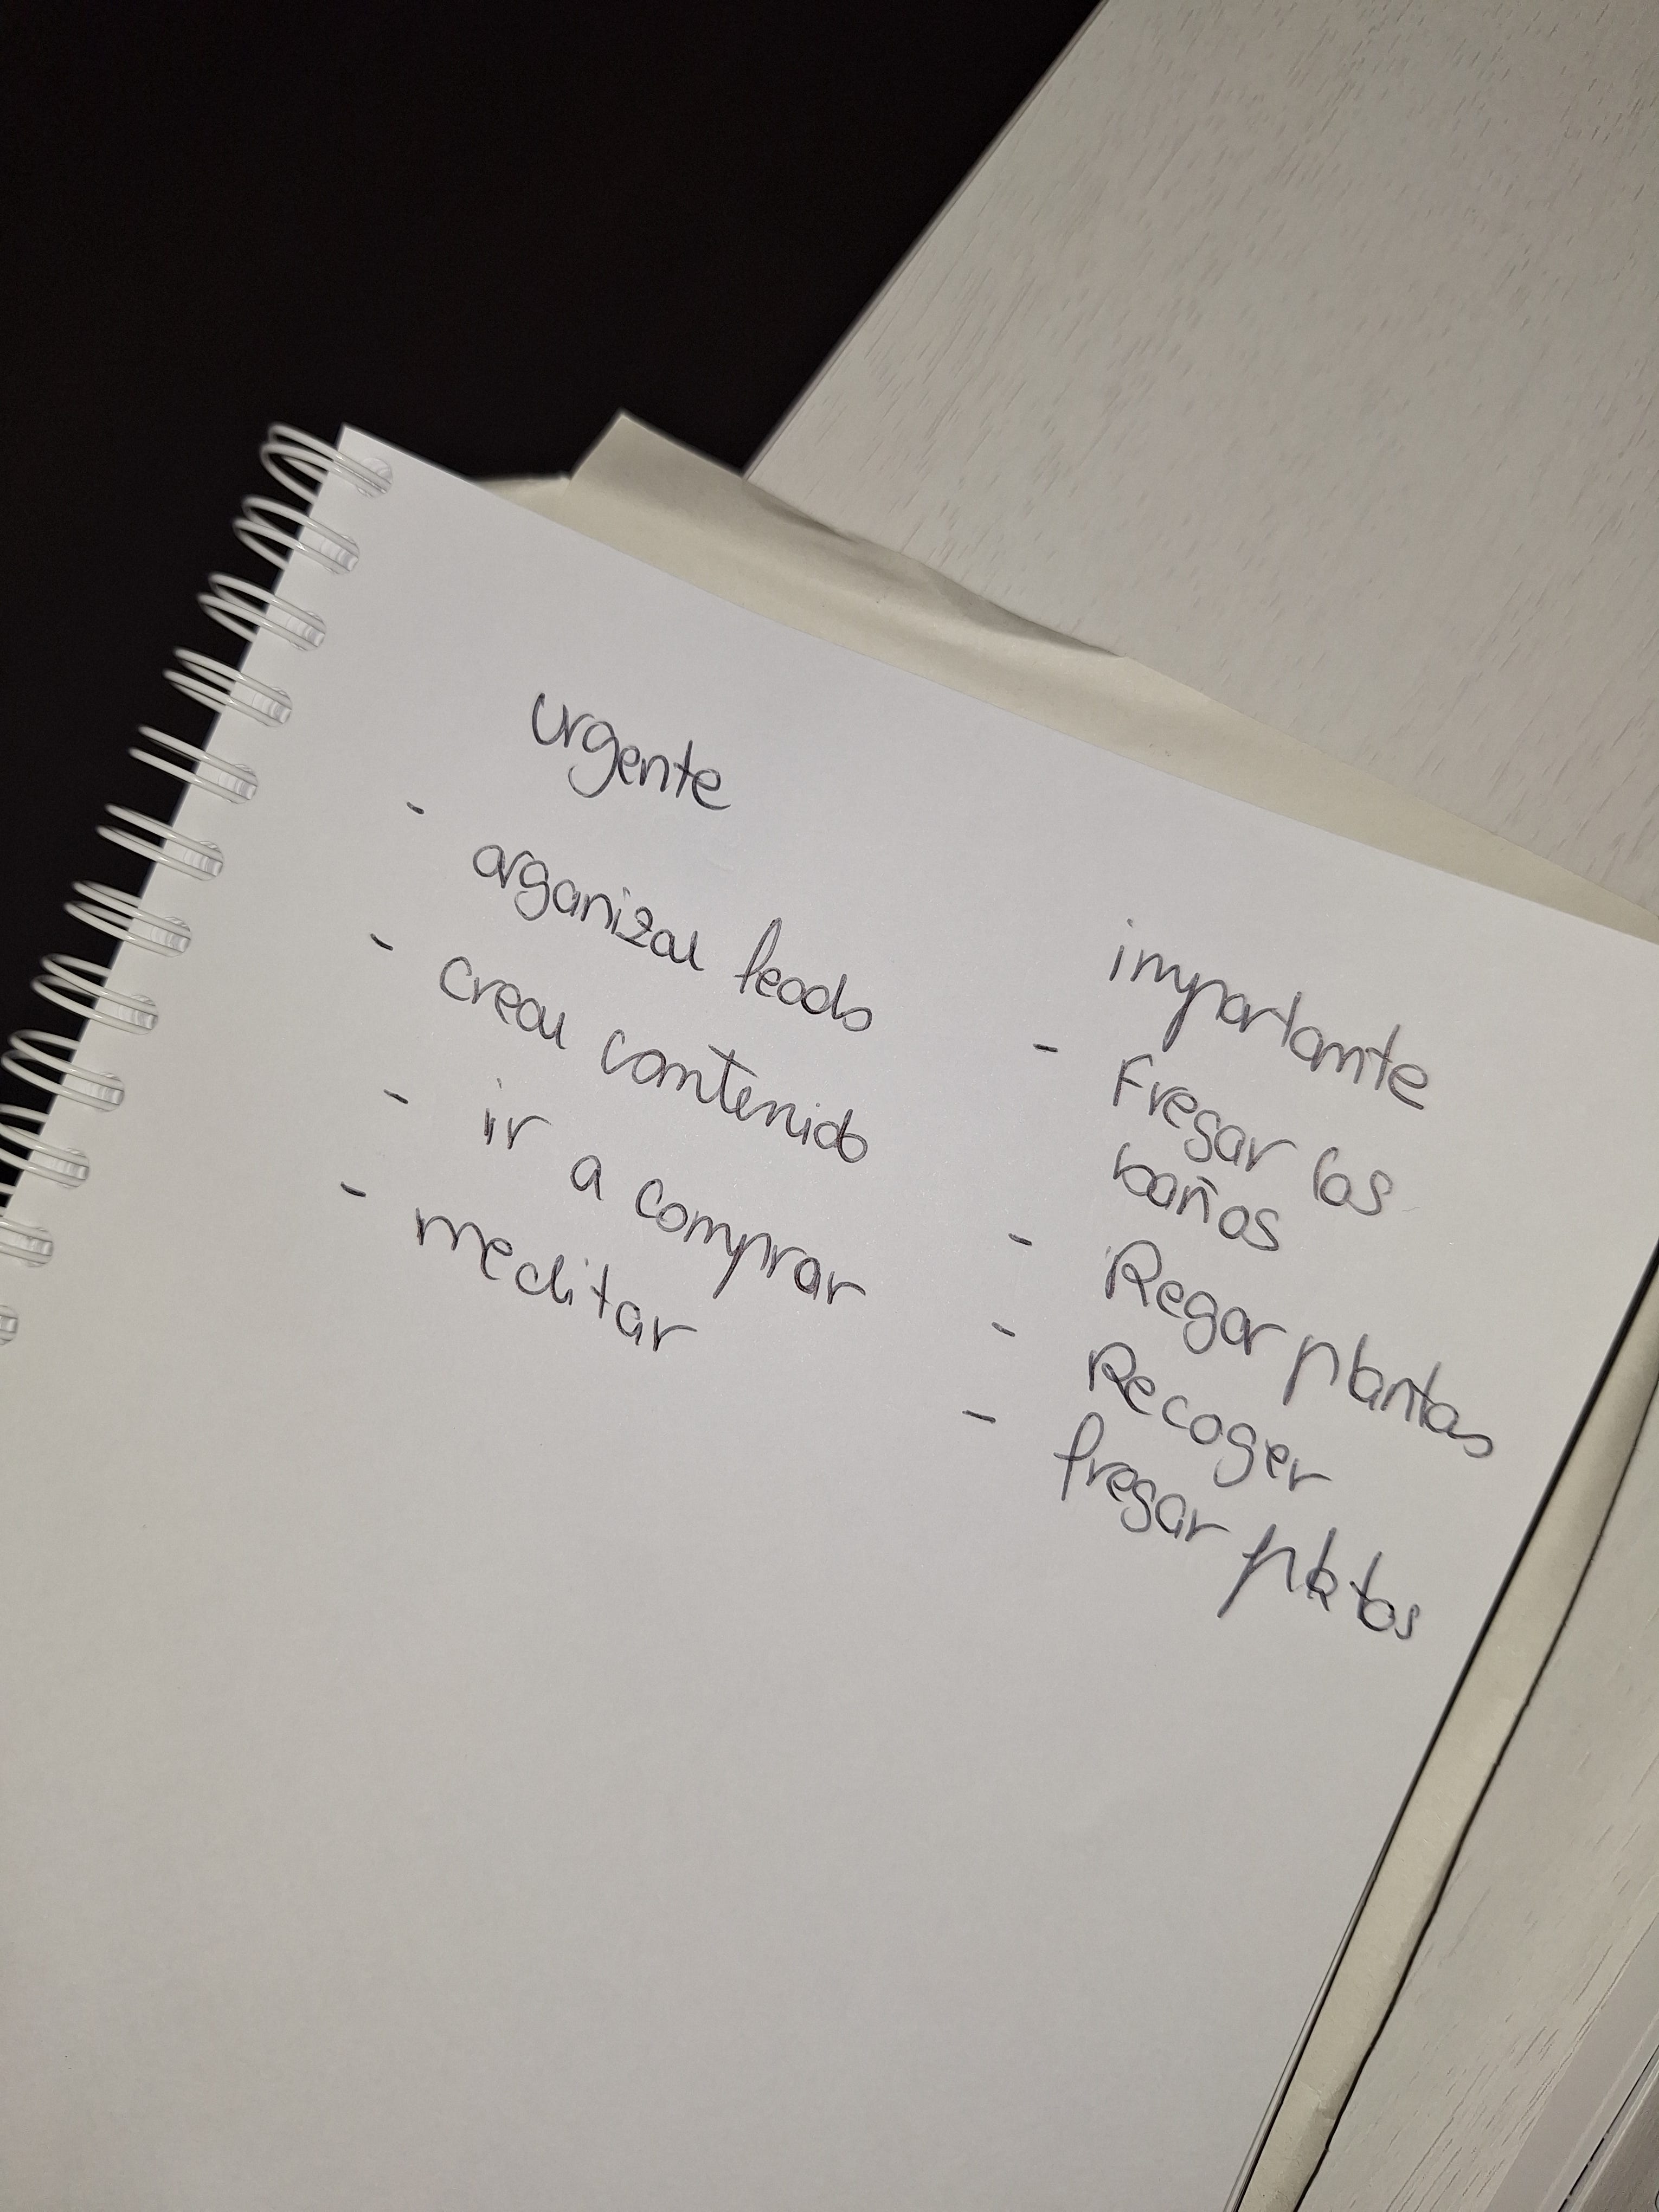 urgente
- organizar leads
- crear contenido
- ir a comprar
- meditar
importante
- Fregar los
baños
- Regar plantas
- Recoger
- fregar platos